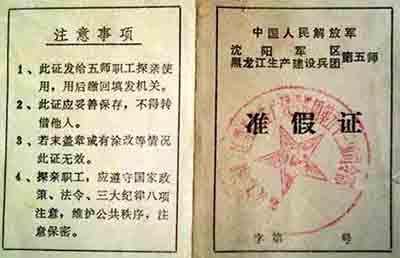 注意事项
1、此证发给五师职工探亲使
用，用后缴回填发机关。
2、此证应妥善保存，不得转
借他人。
3、若未盖章或有涂改等情况
此证无效。
4、探亲职工，应遵守国家政
策、法令、三大纪律八项
注意，维护公共秩序，注
意保密。
中国人民解放军
沈阳军区
黑龙江生产建设兵团 第五师
准假证
字第 号